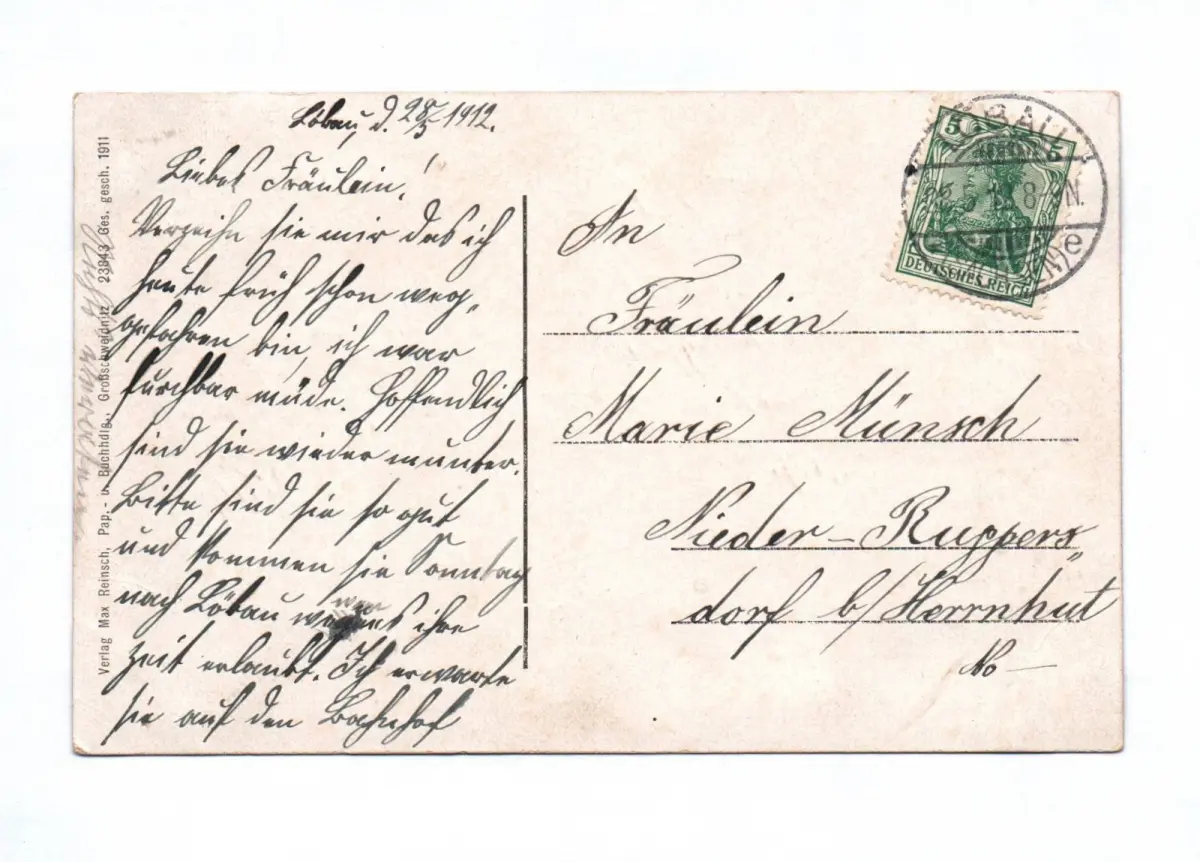 Löbau, d. 28/5 1912.
Liebes Fräulein!
Verzeihn sie mir das ich
heute früh schon weg-
gefahren bin, ich war
furchbar müde. Hoffendlich
sind sie wieder munter.
Bitte sind sie so gut
und kommen sie Sonntag
nach Löbau wenns ihre
Zeit erlaubt. Ich erwarte
sie auf den Bahnhof
Verlag Max Reinsch, Pap.- u. Buchhdlg., Großschweidnitz 23843 Ges. gesch. 1911
An
Fräulein
Marie Münsch
Nieder-Ruppers
dorf b/Herrnhut
No —
5 5
DEUTSCHES REICH
LÖBAU
28.5.12. 8-9N.
e